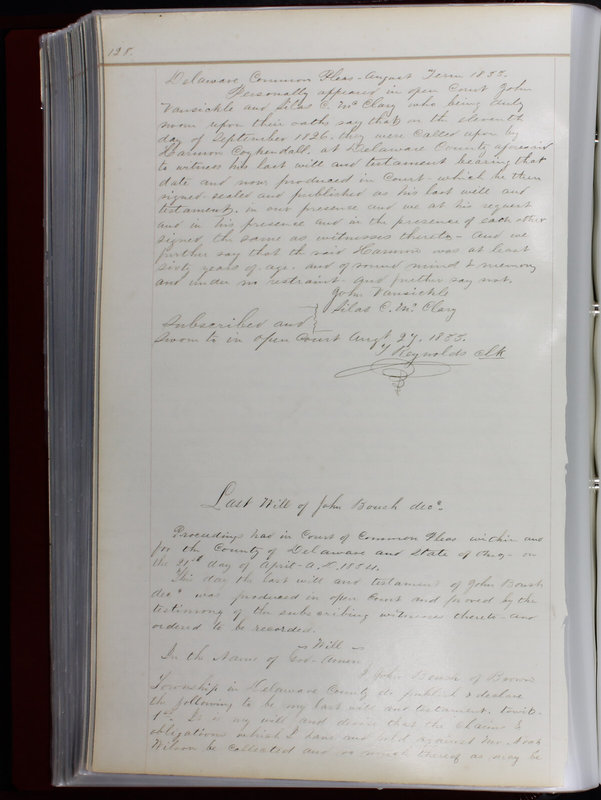 128.
Delaware Common Pleas - August Term 1835.
Personally appeared in open Court John
Vansickle and Silas C. McClary who being duly
sworn upon their oaths say that on the eleventh
day of September 1826. they were called upon by
Harmon Coykendall, at Delaware County aforesaid
to witness his last will and testament bearing that
date and now produced in Court - which he then
signed sealed and published as his last will and
testament, in our presence and we at his request
and in his presence and in the presence of each other
signed the same as witnesses thereto - and we
further say that the said Harmon was at least
sixty years of age, and of sound mind & memory
and under no restraint and further say not.
John Vansickle
Silas C. McClary
Subscribed and
Sworn to in open Court Augt 27. 1835.
T Reynolds Clk
Last Will of John Boush decd.
Proceedings had in Court of Common Pleas within and
for the County of Delaware and State of Ohio - on
the 21st day of April - A.D. 1834.
This day the last will and testament of John Boush
decd was produced in open Court and proved by the
testimony of the subscribing witnesses thereto - and
ordered to be recorded.
Will
In the Name of God - Amen
I John Boush of Brown
Township in Delaware County do publish & declare
the following to be my last will and testament. towit-
1st. It is my will and devise that the claims &
obligations which I have and hold against
Wilson be collected and so much thereof as may be